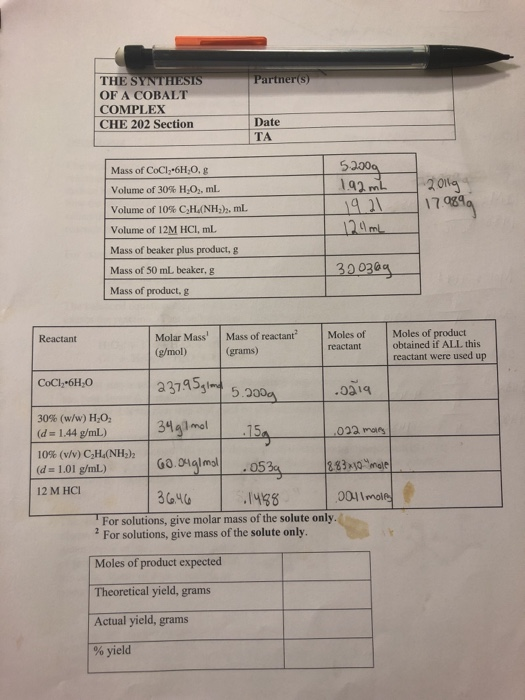 THE SYNTHESIS
OF A COBALT
COMPLEX
Partner(s)
CHE 202 Section
Date
TA
Mass of CoCl₂•6H₂O, g
5.200g
Volume of 30% H₂O₂, mL
1.92 mL
Volume of 10% C₂H₄(NH₂)₂, mL
19.21
17.989g
Volume of 12M HCl, mL
Mass of beaker plus product, g
Mass of 50 mL beaker, g
30.036g
Mass of product, g
Reactant
Molar Mass¹
(g/mol)
Mass of reactant²
(grams)
Moles of
reactant
Moles of product
obtained if ALL this
reactant were used up
CoCl₂•6H₂O
237.95g/mol
5.200g
.0219
30% (w/w) H₂O₂
(d = 1.44 g/mL)
34g/mol
.75g
.022 moles
10% (v/v) C₂H₄(NH₂)₂
(d = 1.01 g/mL)
60.04g/mol
.053g
8.83x10⁻⁴mole
12 M HCl
36.46
.1488
.0041moles
¹ For solutions, give molar mass of the solute only.
² For solutions, give mass of the solute only.
Moles of product expected
Theoretical yield, grams
Actual yield, grams
% yield